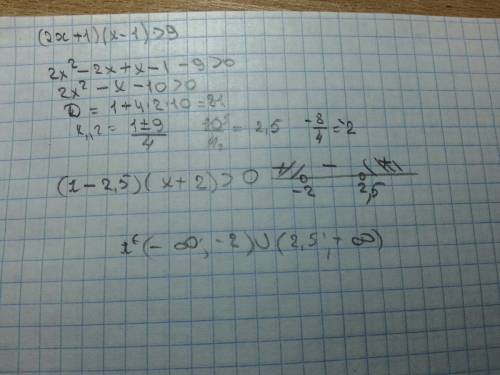 (2x+1)(x-1)>9
2x²-2x+x-1-9>0
2x²-x-10>0
D = 1+4·2·10=81
x₁,₂ = (1±9)/4   10⁵/4₂ = 2,5   -8/4=-2
(x-2,5)(x+2)>0   + - +
-2   2,5
x∈(-∞;-2)∪(2,5;+∞)